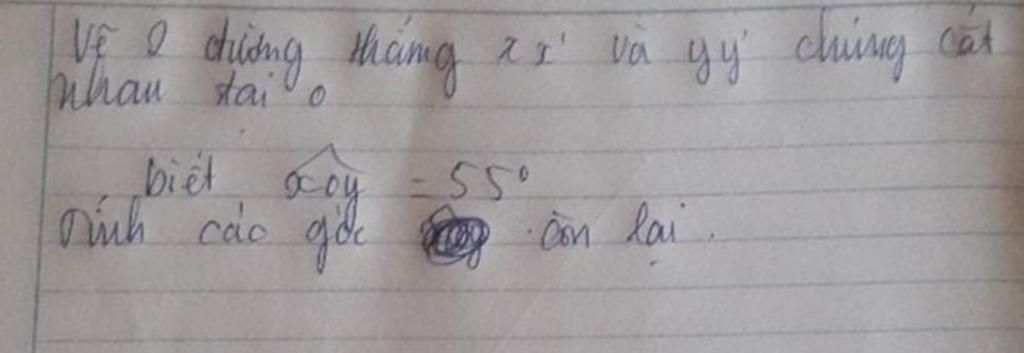 Vẽ 2 đường thẳng xx' và yy' chúng cắt
nhau tại O
biết xOy = 55°
Tính các góc còn lại.